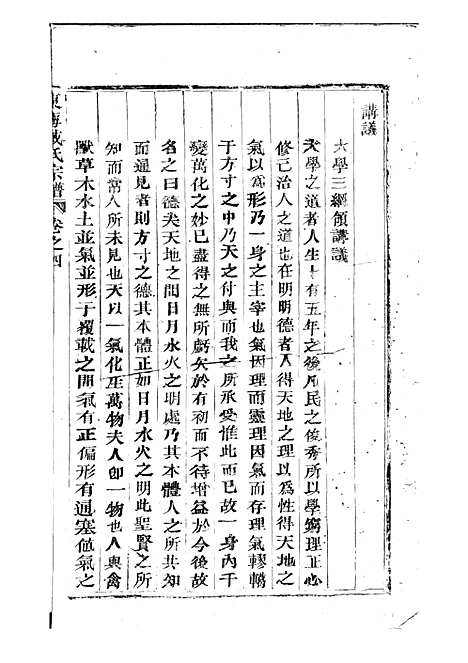 講議
大學三綱領講議
大學之道者人生十有五年之後凡民之俊秀所以學窮理正心
修己治人之道也在明明德者人得天地之理以爲性得天地之
氣以爲形乃一身之主宰也氣因理而靈理因氣而存理氣轇轕
于方寸之中乃天之付與而我之所承受惟此而已故一身內千
變萬化之妙已盡得之無所虧欠於有初而不待增益於今後故
名之曰德夫天地之間日月水火之明處乃其本體人之所共知
而通見者則方寸之德其本體正如日月水火之明此聖賢之所
知而常人所未見也天以一氣化生萬物夫人卽一物也人與禽
獸草木水土並氣並形于覆載之間氣有正偏形有通塞値氣之
東海戴氏宗譜 卷之四